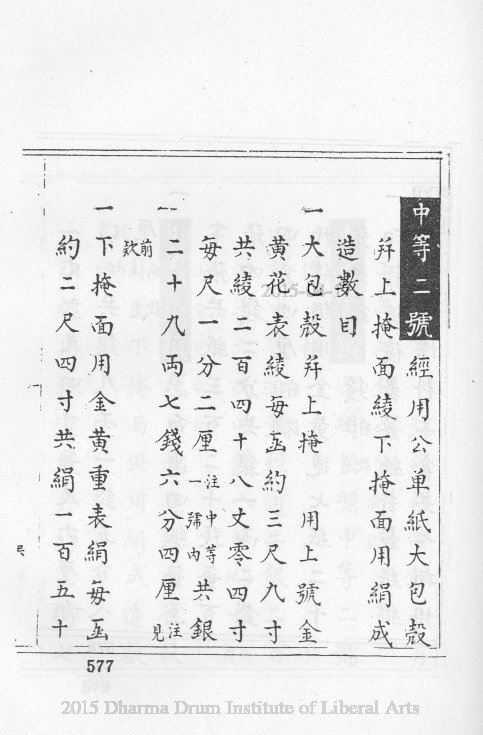 中等二號經用公單紙大包殼
并上掩面綾下掩面用絹成
造數目
一大包殼并上掩用上號金
黃花表綾每函約三尺九寸
共綾二百四十八丈零四寸
每尺一分二厘注中等一號內共銀
二十九両七錢六分四厘注見
前欵
一下掩面用金黃重表絹每函
約二尺四寸共絹一百五十
577
2015 Dharma Drum Institute of Liberal Arts